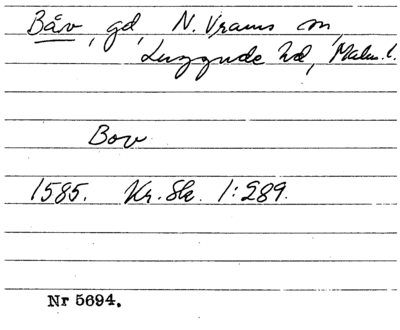 Båv, gd, N. Vrams sn,
Luggude hd, Malm. l.
Bov
1585. Kr. Sk. 1:289.
Nr 5694.